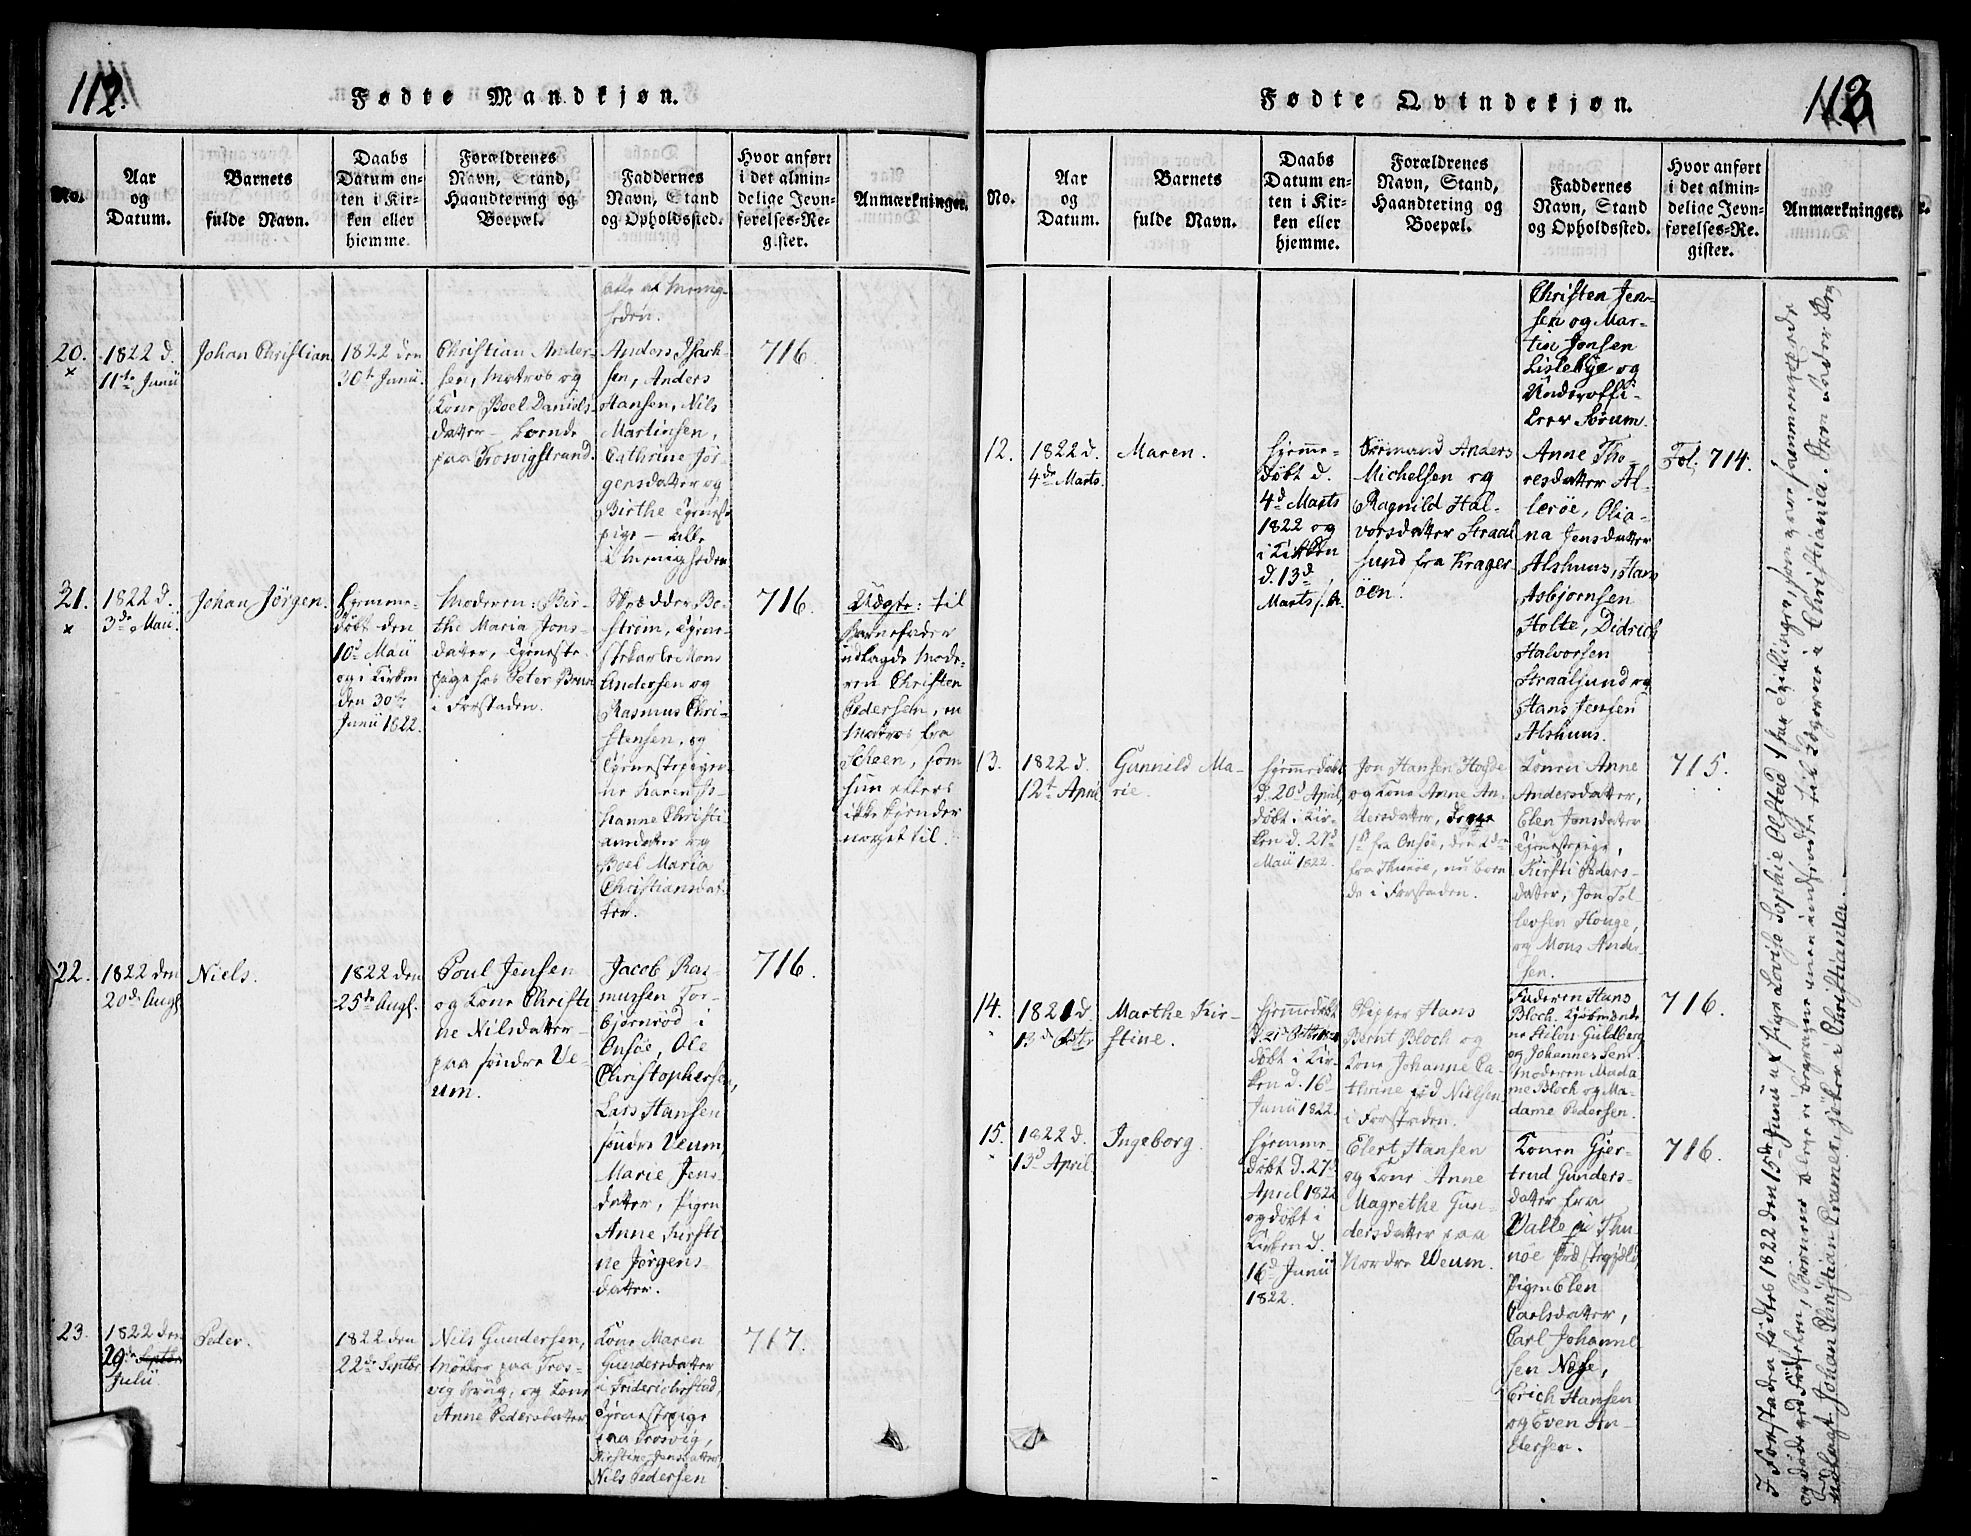 112.
Fødte Mandkjøn.
No.
Aar
og
Datum.
Barnets
fulde Navn.
Daabs
Datum en-
ten i Kir-
ken eller
hjemme.
Forældrenes
Navn, Stand,
Haandtering og
Boepæl.
Faddernes
Navn, Stand
og Opholdssted.
Hvor anført
i det almin-
delige Jevn-
førelses-Re-
gister.
Anmærkninger.
20.
1822 d.
11te Junii
Johan Christian
1822 den
30te Junii.
Christian Ander-
sen, Matros og
Kone Boel Daniels-
datter
paa Troswigstrand.
alle af Menig-
heden.
Anders Isach-
sen, Anders
Hansen, Nils
Martinsen,
Cathrine Jør-
gensdatter og
Birthe Tjeneste
pige - alle
i Menigheden
716.
21.
1822 d.
3de Maii.
Johan Jörgen.
Hjemme-
döbt den
10de Maii
og i Kirken
den 30te
Junii 1822.
Moderen: Bir-
the Maria Jons-
datter, Tjeneste-
pige hos Peter
i Forstaden.
Skrædder Be-
ström, Tjene-
stekarle Mons
Andersen og
Rasmus Chri-
stensen, og
Tjenestepiger-
ne Karen
hanne Christi
ansdatter og
Boel Maria
Christiansdat-
ter.
716.
Uægte: til
Barnefader
udlagde Mode-
ren Christen
Pedersen, en
Matros fra
Scheen, som
hun ellers
ikke kjender
noget til.
22.
1822 den
20de Augl.
Niels.
1822 den
25de Augl.
Poul Jensen
og Kone Christi
ne Nilsdatter
paa söndre Ve-
um.
Jacob Ras-
mussen Tor-
björnröd i
Onsöe, Ole
Christophersen,
Lars Hansen
söndre Veum,
Marie Jens
datter, Pigen
Anne Kirsti
ne Jörgens-
datter.
716.
23.
1822 den
29de Septbr
Julii
Peder.
1822 den
22de Septbr
Nils Gundersen,
Möller paa Tros-
vig Brug, og Kone
Anne Pedersdatter
Kone Maren
Gundersdatter
i Friderichsstad,
Tjenestepige
paa Trosvig,
Kirstine Jensdatter
Nils Pedersen
717.
113
Fødte Qvindekjøn.
No.
Aar
og
Datum.
Barnets
fulde Navn.
Daabs
Datum en-
ten i Kir-
ken eller
hjemme.
Forældrenes
Navn, Stand,
Haandtering og
Boepæl.
Faddernes
Navn, Stand
og Opholdssted.
Hvor anført
i det almin-
delige Jevn-
førelses-Re-
gister.
Anmærkninger.
Christen Jen-
sen og Mar-
tin Jonsen
Lislebye og
Underoffi-
ceer Sörum.
12.
1822 d.
4de Marts.
Maren.
Hjemme-
döbt d.
4de Marts
1822 og
i Kirken
d. 13de
Marts
Styrmand Anders
Michelsen og
Ragnild Hal-
vorsdatter Straal
sund fra Krager-
öen.
Anne Tho-
resdatter Al-
leröe, Olia-
na Jensdatter
Alshuus, Hans
Asbjørnsen
Holte, Didrich
Halvorsen
Straalsund og
Hans Jensen
Alshuus.
Fol. 714.
13.
1822 d.
12te April
Gunnild Ma-
rie.
Hjemmedöbt
d. 20de April,
döbt i Kir-
ken d. 27de
Maii 1822.
Jon Hansen
og Kone Anne An-
dersdatter,
fra Onsöe, den
fra Thunöe, nu boen
de i Forstaden.
Konen Anne
Andersdatter,
Elen Jonsdatter
Tjenestepige,
Kirsti Peders-
datter, Jon Tol-
levsen Houge,
og Mons Ander-
sen.
715.
14.
1821 d.
13de Octbr
Marthe Kir-
stine.
Hjemmedöbt
döbt i Kir-
ken d. 16de
Junii 1822.
Skipper Hans
Bernt Bloch og
Kone Johanne Ca-
thrine föd Nielsen
i Forstaden.
Faderen Hans
Bloch. Kjöbmænde-
ne Stilou Guldberg
og Johannes Sem.
Moderen Mada
me Bloch og Ma-
dame Pedersen.
716.
15.
1822 d.
13de April.
Ingeborg.
Hjemme
döbt d. 27de
April 1822
og döbt i
Kirken d.
16de Junii
1822.
Elert Hansen
og Kone Anne
Magrethe Gun-
dersdatter paa
Nordre Weum.
Konen Gjer-
trud Gunders-
datter fra
Valle paa Thu-
nöe
Pigen Elen
Carlsdatter,
Carl Johanne
sen Næse,
Erich Hansen
og Even An-
dersen.
716.
I Forstaden födtes 1822 den 15de Junii af Pige Lovise Sophie Alsted 1 par Tvillinger, som vare sammenvoxede
og döde ved Födselen, Börnene bleve ei begravne men indsendte til Lægerne i Christiania. Som Fader blev
udlagt Johan Christian Cramer, Sjöker i Christiania.